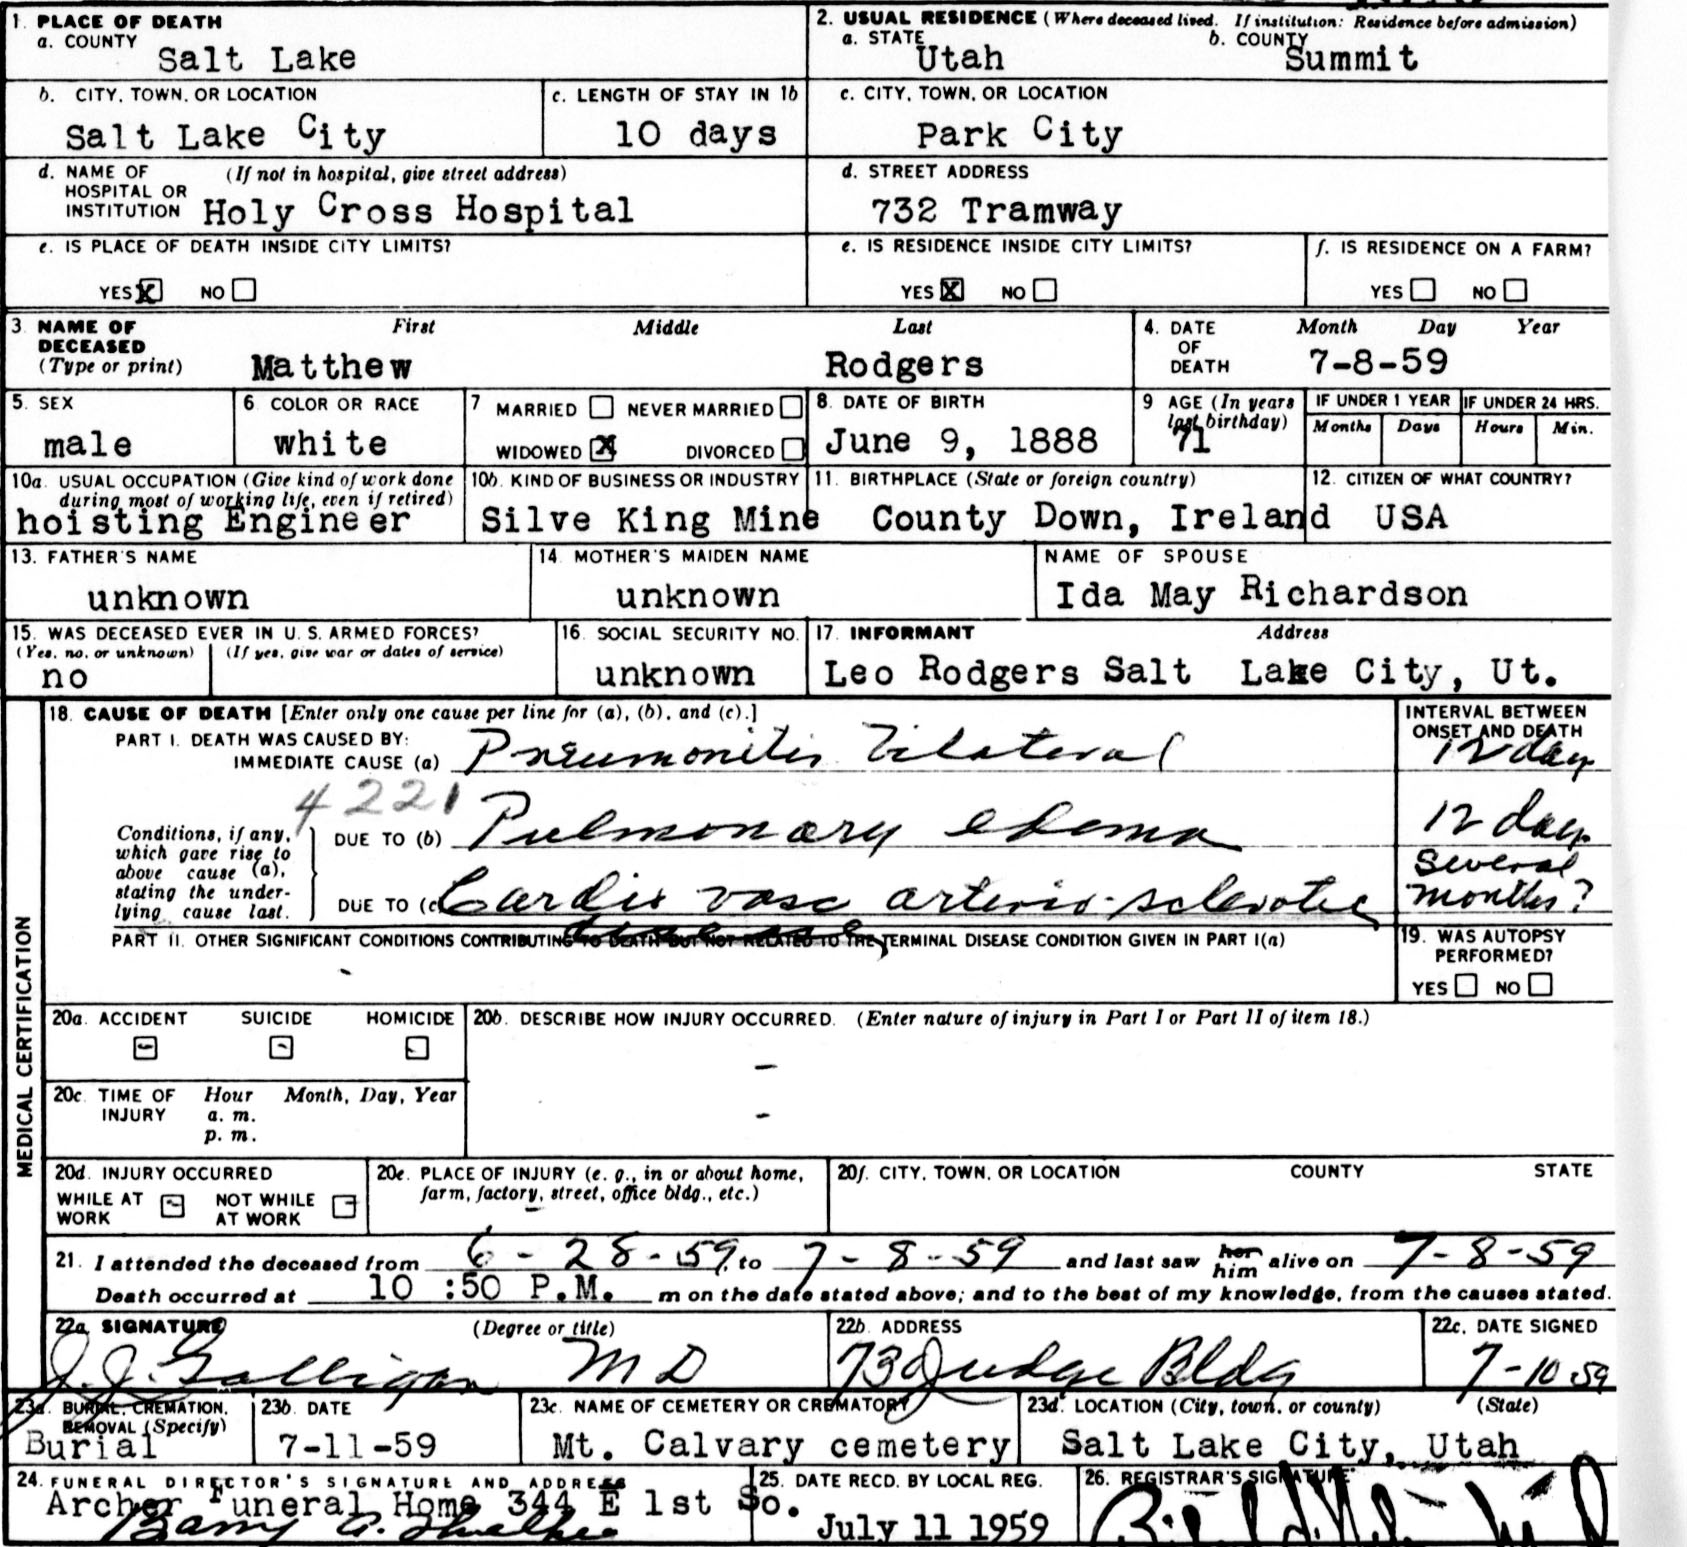 1. PLACE OF DEATH
a. COUNTY
Salt Lake
2. USUAL RESIDENCE (Where deceased lived. If institution: Residence before admission)
a. STATE
Utah
b. COUNTY
Summit
b. CITY, TOWN, OR LOCATION
Salt Lake City
c. LENGTH OF STAY IN 1b
10 days
c. CITY, TOWN, OR LOCATION
Park City
d. NAME OF HOSPITAL OR INSTITUTION (If not in hospital, give street address)
Holy Cross Hospital
d. STREET ADDRESS
732 Tramway
e. IS PLACE OF DEATH INSIDE CITY LIMITS?
YES X NO
e. IS RESIDENCE INSIDE CITY LIMITS?
YES X NO
f. IS RESIDENCE ON A FARM?
YES NO
3. NAME OF DECEASED (Type or print)
First Middle Last
Matthew Rodgers
4. DATE OF DEATH
Month Day Year
7-8-59
5. SEX
male
6. COLOR OR RACE
white
7 MARRIED NEVER MARRIED
WIDOWED X DIVORCED
8. DATE OF BIRTH
June 9, 1888
9 AGE (In years last birthday)
71
IF UNDER 1 YEAR
Months Days
IF UNDER 24 HRS.
Hours Min.
10a. USUAL OCCUPATION (Give kind of work done during most of working life, even if retired)
hoisting Engineer
10b. KIND OF BUSINESS OR INDUSTRY
Silve King Mine
11. BIRTHPLACE (State or foreign country)
County Down, Ireland
12. CITIZEN OF WHAT COUNTRY?
USA
13. FATHER'S NAME
unknown
14. MOTHER'S MAIDEN NAME
unknown
NAME OF SPOUSE
Ida May Richardson
15. WAS DECEASED EVER IN U. S. ARMED FORCES?
(Yes, no, or unknown) (If yes, give war or dates of service)
no
16. SOCIAL SECURITY NO.
unknown
17. INFORMANT Address
Leo Rodgers Salt Lake City, Ut.
MEDICAL CERTIFICATION
18. CAUSE OF DEATH [Enter only one cause per line for (a), (b), and (c).]
INTERVAL BETWEEN ONSET AND DEATH
PART I. DEATH WAS CAUSED BY:
IMMEDIATE CAUSE (a) Pneumonitis bilateral 12 days
4221
Conditions, if any, which gave rise to above cause (a), stating the underlying cause last.
DUE TO (b) Pulmonary edema 12 days
DUE TO (c) Cardio vasc arterio-sclerotic disease several months?
PART II. OTHER SIGNIFICANT CONDITIONS CONTRIBUTING TO DEATH BUT NOT RELATED TO THE TERMINAL DISEASE CONDITION GIVEN IN PART I(a)
19. WAS AUTOPSY PERFORMED?
YES NO
20a. ACCIDENT SUICIDE HOMICIDE
20b. DESCRIBE HOW INJURY OCCURRED. (Enter nature of injury in Part I or Part II of item 18.)
20c. TIME OF INJURY
Hour Month, Day, Year
a. m.
p. m.
20d. INJURY OCCURRED
WHILE AT WORK NOT WHILE AT WORK
20e. PLACE OF INJURY (e. g., in or about home, farm, factory, street, office bldg., etc.)
20f. CITY, TOWN, OR LOCATION COUNTY STATE
21. I attended the deceased from 6-28-59, to 7-8-59 and last saw her him alive on 7-8-59
Death occurred at 10 :50 P.M. m on the date stated above; and to the best of my knowledge, from the causes stated.
22a. SIGNATURE (Degree or title)
J. J. Galligan MD
22b. ADDRESS
73 Judge Bldg
22c. DATE SIGNED
7-10-59
23a. BURIAL, CREMATION, REMOVAL (Specify)
Burial
23b. DATE
7-11-59
23c. NAME OF CEMETERY OR CREMATORY
Mt. Calvary cemetery
23d. LOCATION (City, town, or county) (State)
Salt Lake City, Utah
24. FUNERAL DIRECTOR'S SIGNATURE AND ADDRESS
Archer Funeral Home 344 E 1st So.
25. DATE RECD. BY LOCAL REG.
July 11 1959
26. REGISTRAR'S SIGNATURE